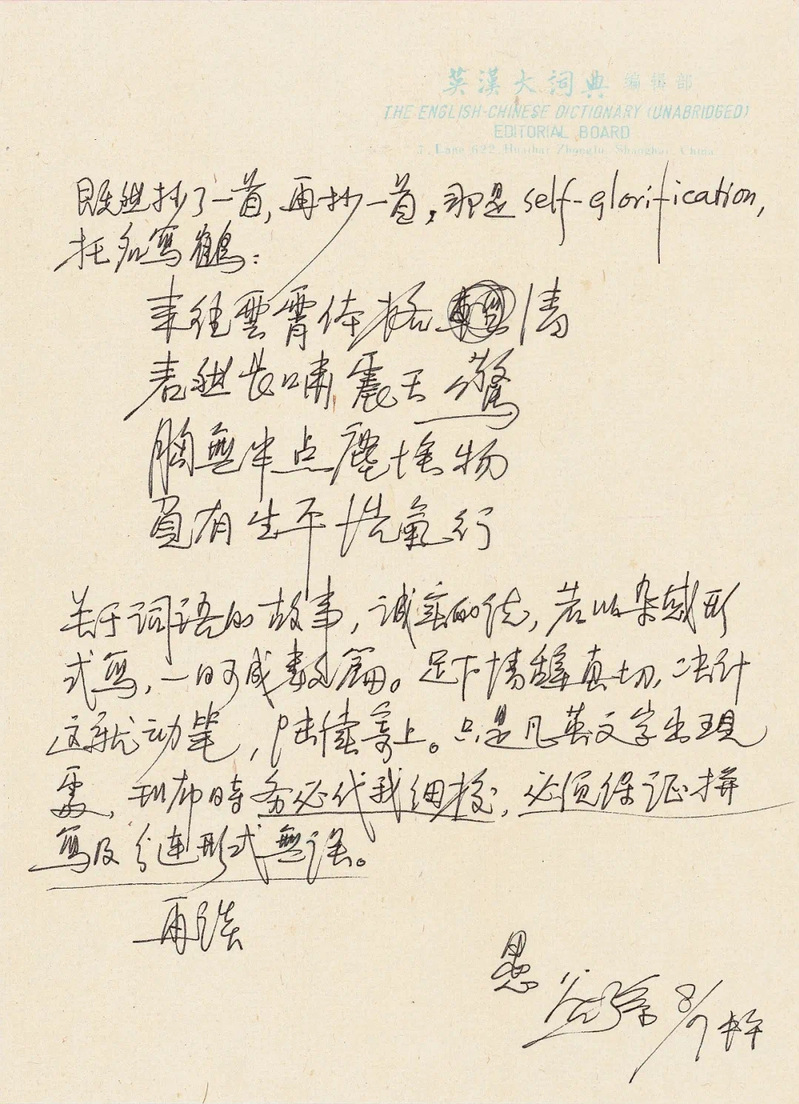 英漢大词典 编辑部
THE ENGLISH-CHINESE DICTIONARY (UNABRIDGED)
EDITORIAL BOARD
7, Lane 622 Huaihai Zhonglu, Shanghai, China
既然抄了一首,再抄一首,那是self-glorification,
托名寫鶴:
来往雲霄体格清
表然长嘯震天驚
胸無半点塵埃物
負有生平浩氣行
关于词语的故事,诚蒙即, 若以杂感形
式寫,一日可成数篇。足下情辞真切,决计
这就动笔,陆续寄上。只是凡英文字出現
處,刊布時务必代我细校,必须保证拼
寫及分连形式無误。
再谈
愚
谷孫 8/7 中午